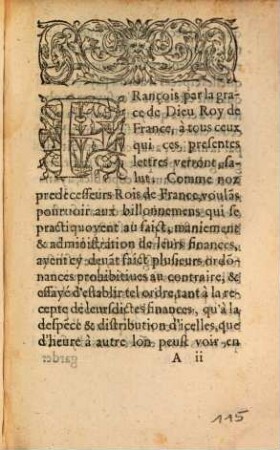 FRançois par la gra-
ce de Dieu Roy de
France, à tous ceux
qui ces presentes
lettres verront, sa-
lut. Comme noz
predecesseurs Rois de France, voulãs
pouruoir aux billonnemens qui se
practiquoyent au faict, maniement
& administration de leurs finances,
ayent ey deuãt faict plusieurs ordõ-
nances prohibitiues au contraire, &
essayé d'establir tel ordre, tant à la re-
cepte de leursdictes finances, qu'à la
despẽce & distribution d'icelles, que
d'heure à autre lon peust voir en
A ii
115